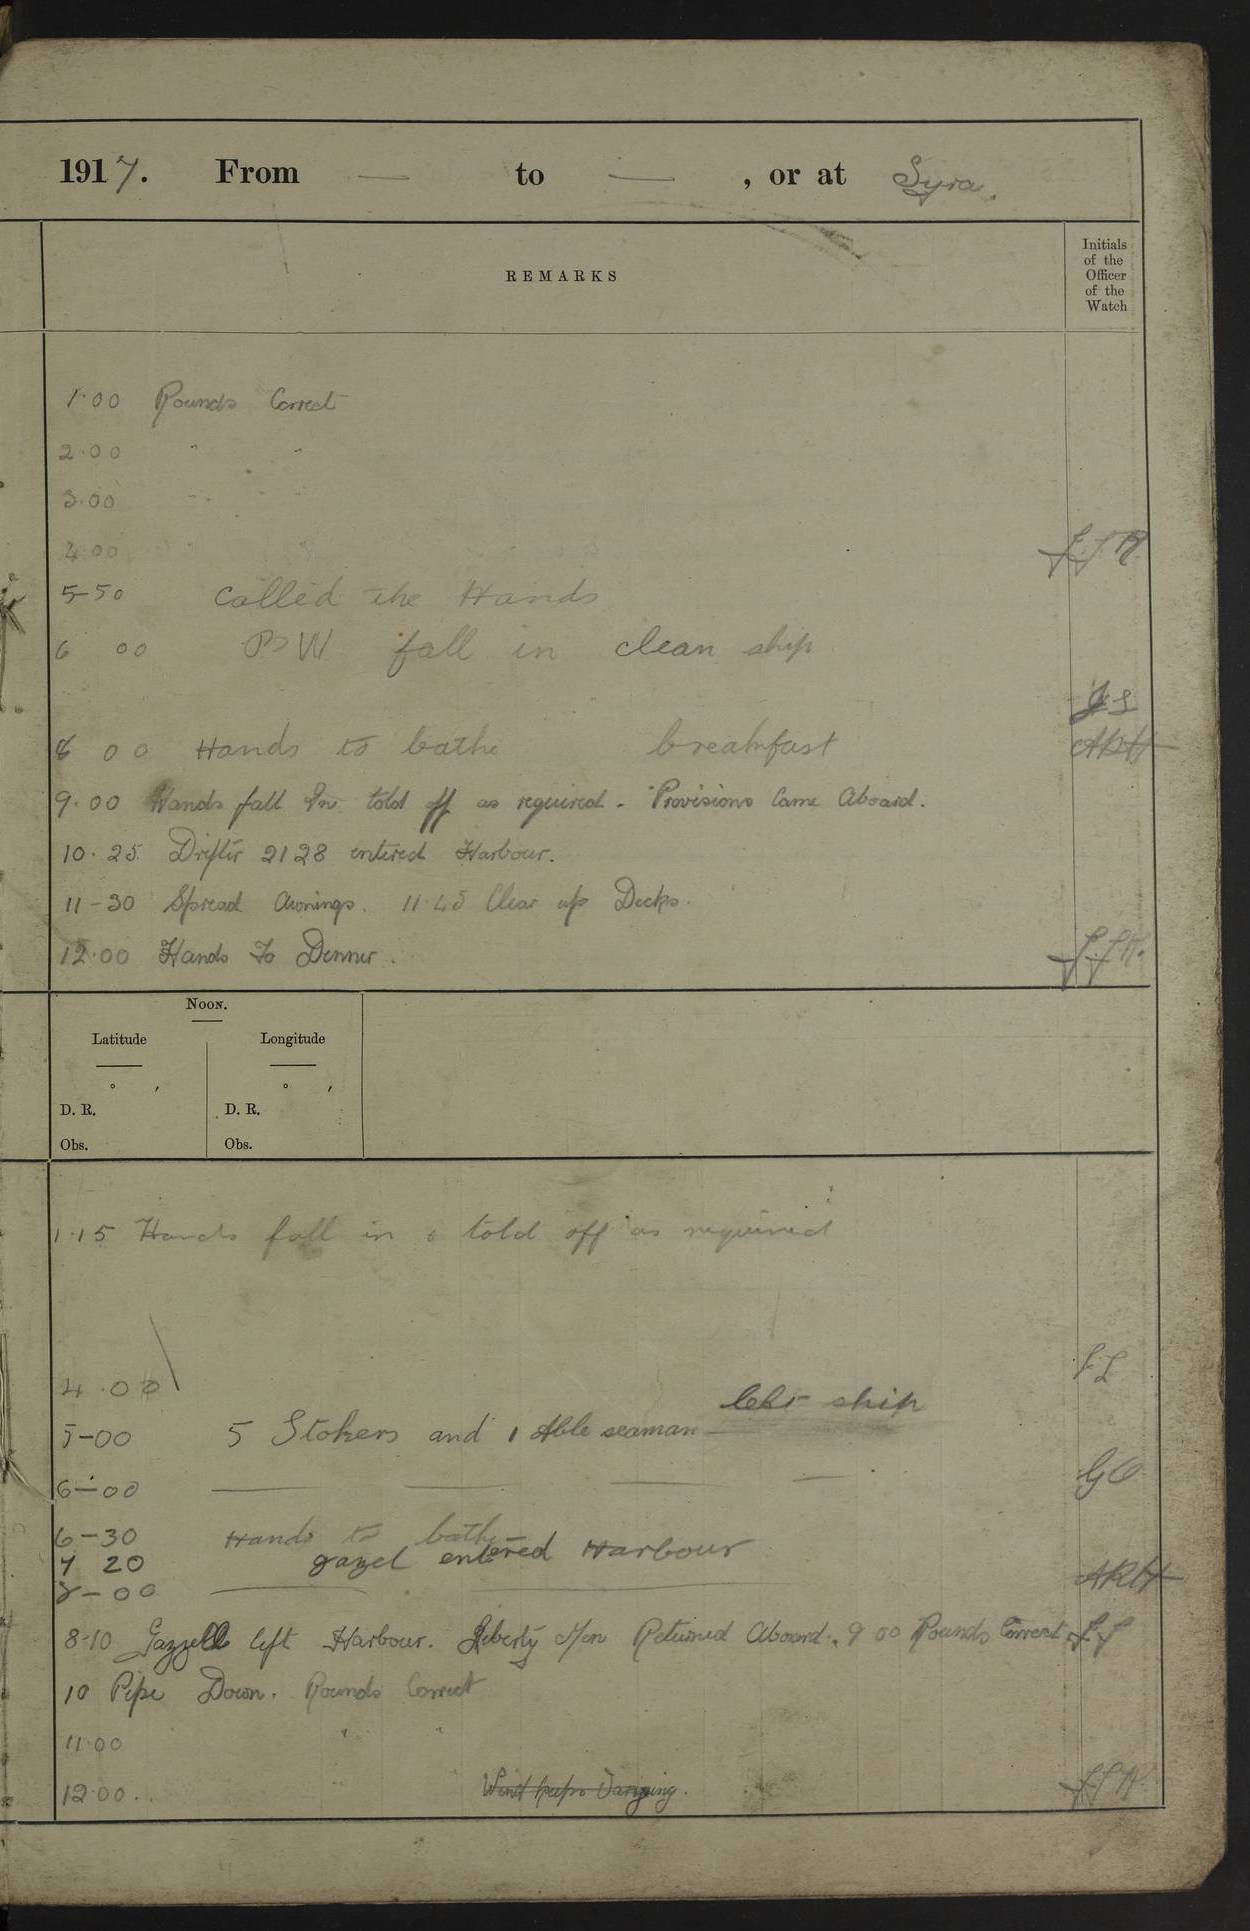 1917. From — to — , or at Syra.
REMARKS
Initials
of the
Officer
of the
Watch
1.00 Rounds Correct
2.00 " "
3.00 " "
4.00 " "
5-50 Called the Hands
6 00 PW fall in clean ship
JS
8 00 Hands to bathe breakfast ARH
9.00 Hands fall In told off as required. Provisions Came Aboard.
10.25 Drifter 2128 entered Harbour.
11-30 Spread Awnings. 11.45 Clear up Decks.
12.00 Hands To Dinner.
NOON.
Latitude Longitude
° ′ ° ′
D. R. D. R.
Obs. Obs.
1.15 Hands fall in & told off as required
4.00
left ship
5-00 5 Stokers and 1 Able seaman
6-00 — — — —
6-30 Hands to bathe
7 20 gazel entered Harbour
8-00 ARH
8-10 Gazzell left Harbour. Liberty Men Returned Aboard. 9 00 Rounds Correct
10 Pipe Down. Rounds Correct
11.00 " "
12.00. Wind keeps Varying.